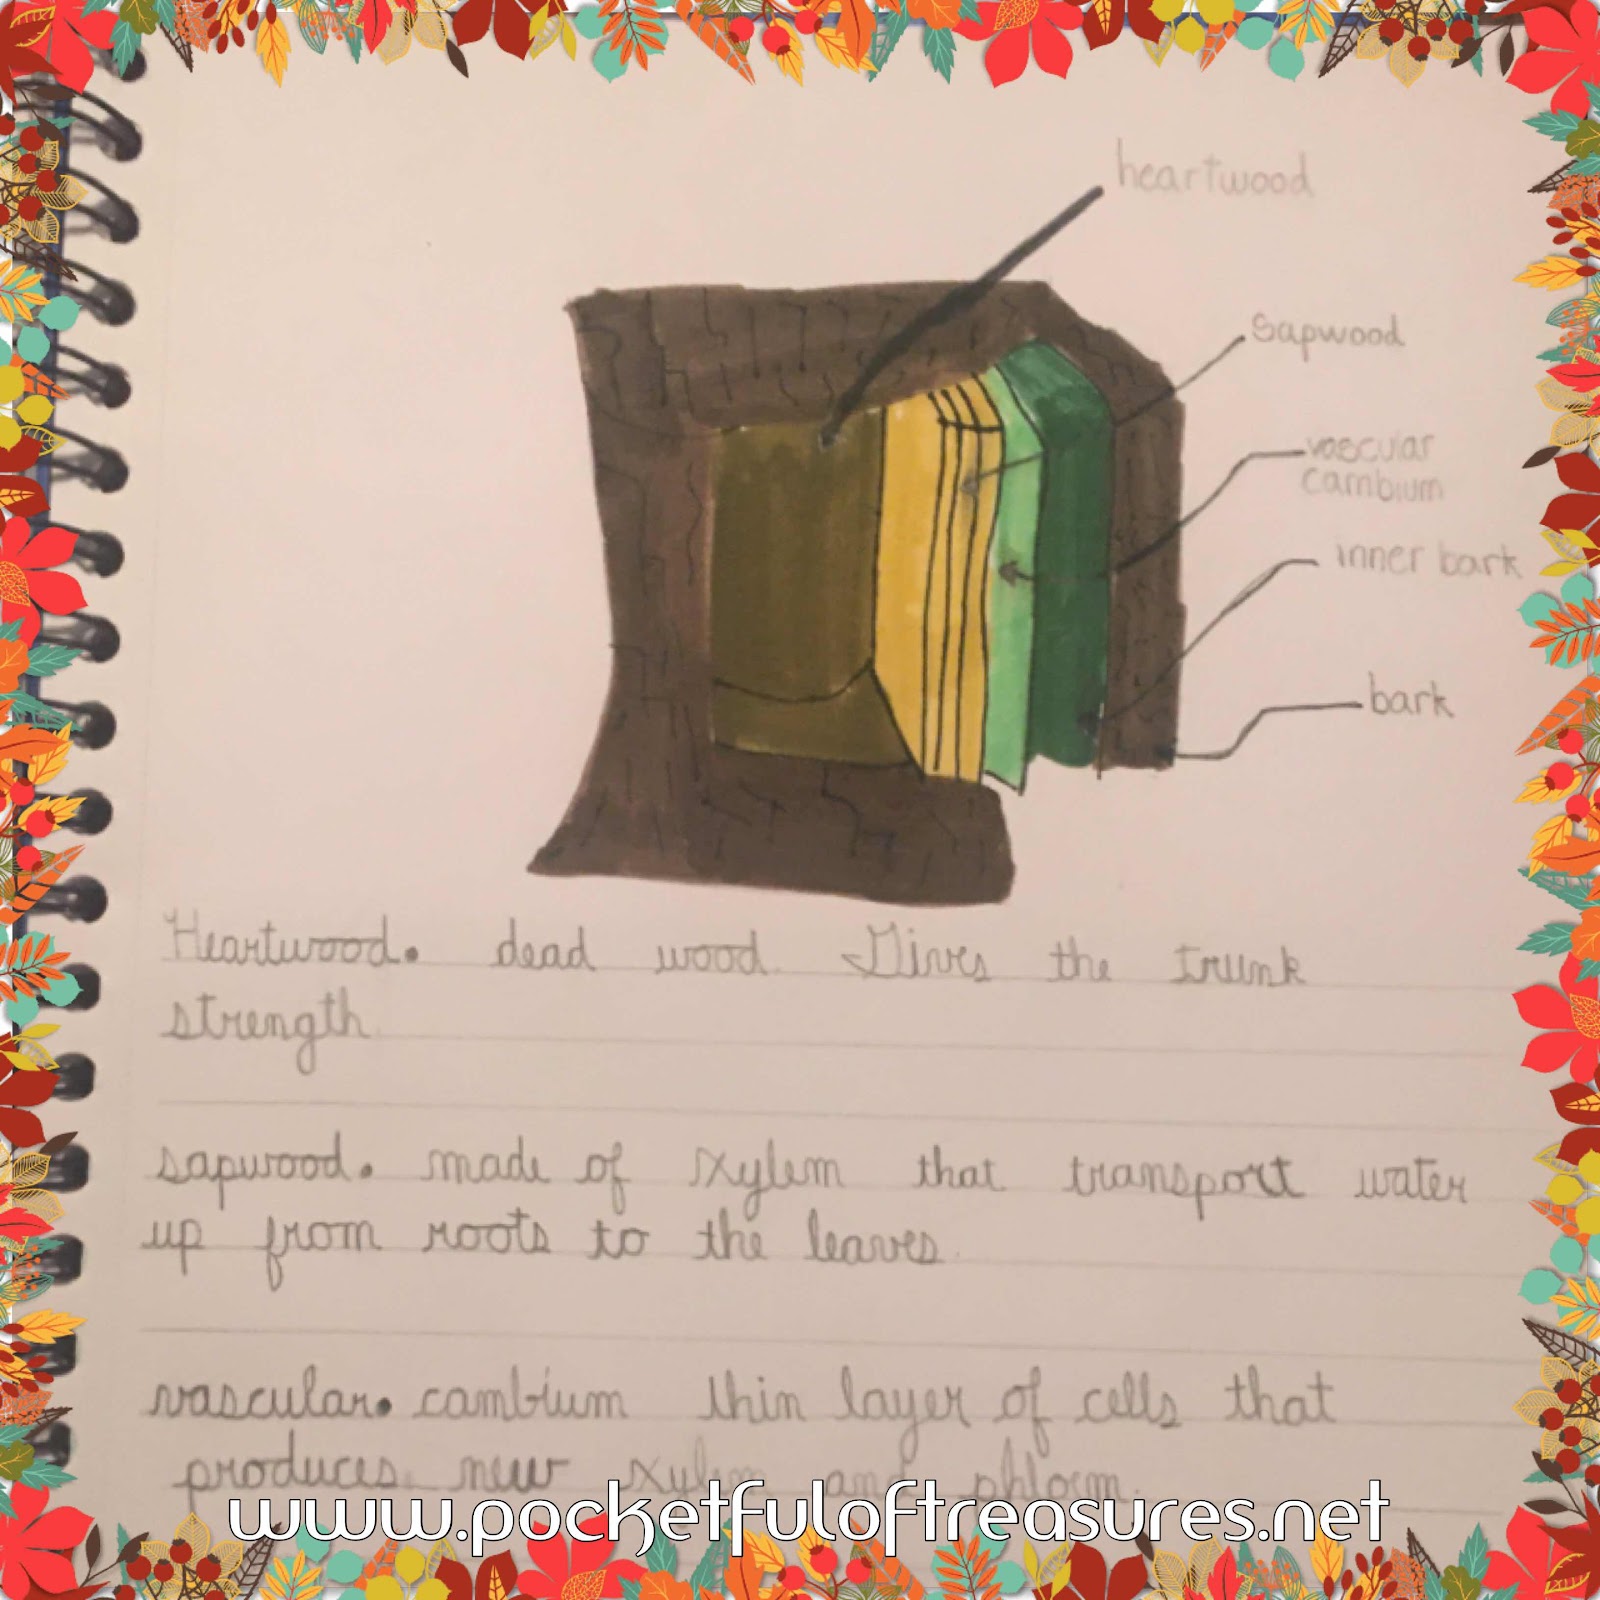 heartwood
sapwood
vascular
cambium
inner bark
bark
Heartwood. dead wood. Gives the trunk
strength
sapwood. made of xylem that transport water
up from roots to the leaves.
vascular. cambium thin layer of cells that
produces new xylem and phloem.
www.pocketfuloftreasures.net